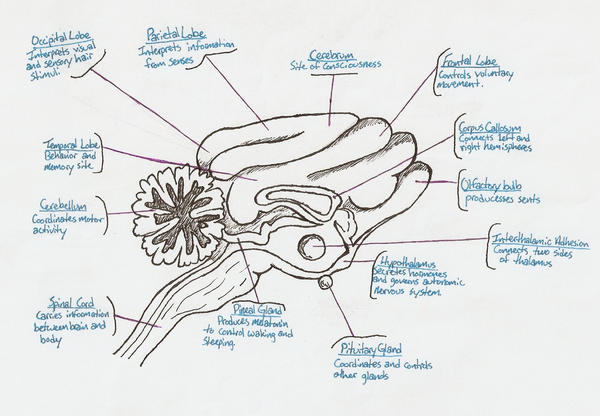 Occipital Lobe
Interprets visual
and sensory hair
stimuli
Parietal Lobe
Interprets information
from senses
Cerebrum
Site of Consciousness
Frontal Lobe
Controls voluntary
movement.
Temporal Lobe
Behavior and
memory site
Corpus Callosum
Connects left and
right hemispheres
Cerebellum
Coordinates motor
activity
Olfactory bulb
producesses sents
Interthalamic Adhesion
Connects two sides
of thalamus
Hypothalamus
secretes hormones
and governs autonomic
nervous system
Spinal Cord
Carries information
between brain and
body
Pineal Gland
Produces melatonin
to control waking and
sleeping.
Pituitary Gland
Coordinates and controls
other glands